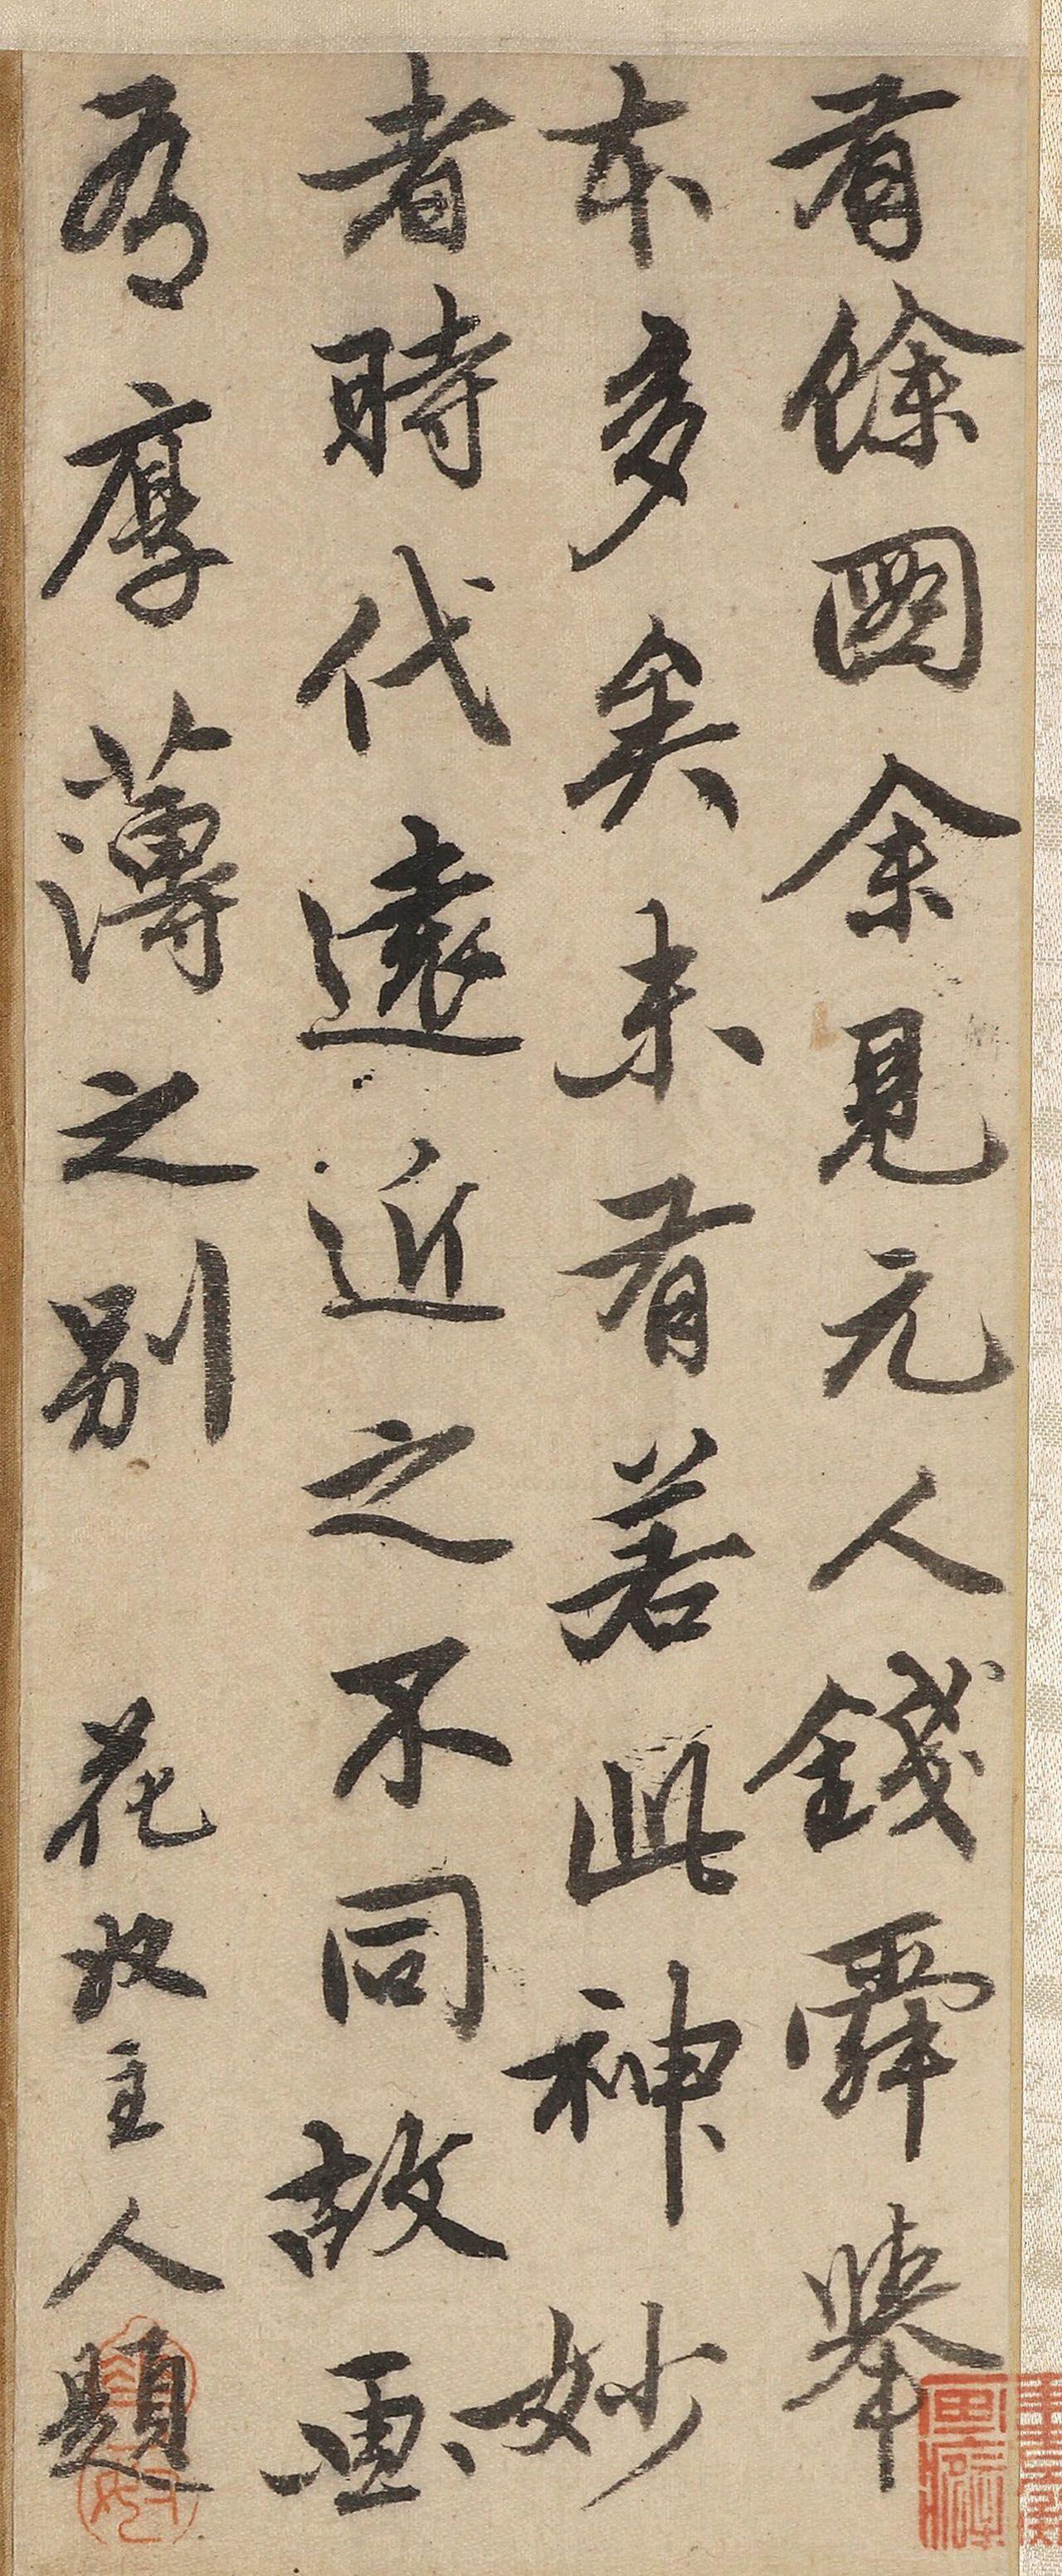 有餘圖余見元人錢舜舉
本多矣未有若此神妙
者時代遠近之不同故畫
有厚薄之別　花奴主人題